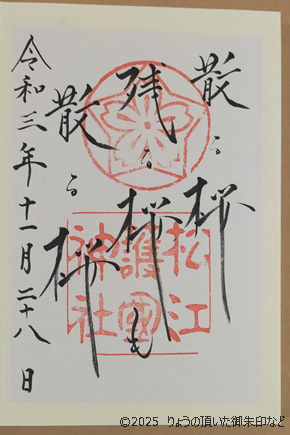 散る桜
残る桜も
散る桜
令和三年十一月二十八日
松江
護國
神社
©2025 りょうの頂いた御朱印など